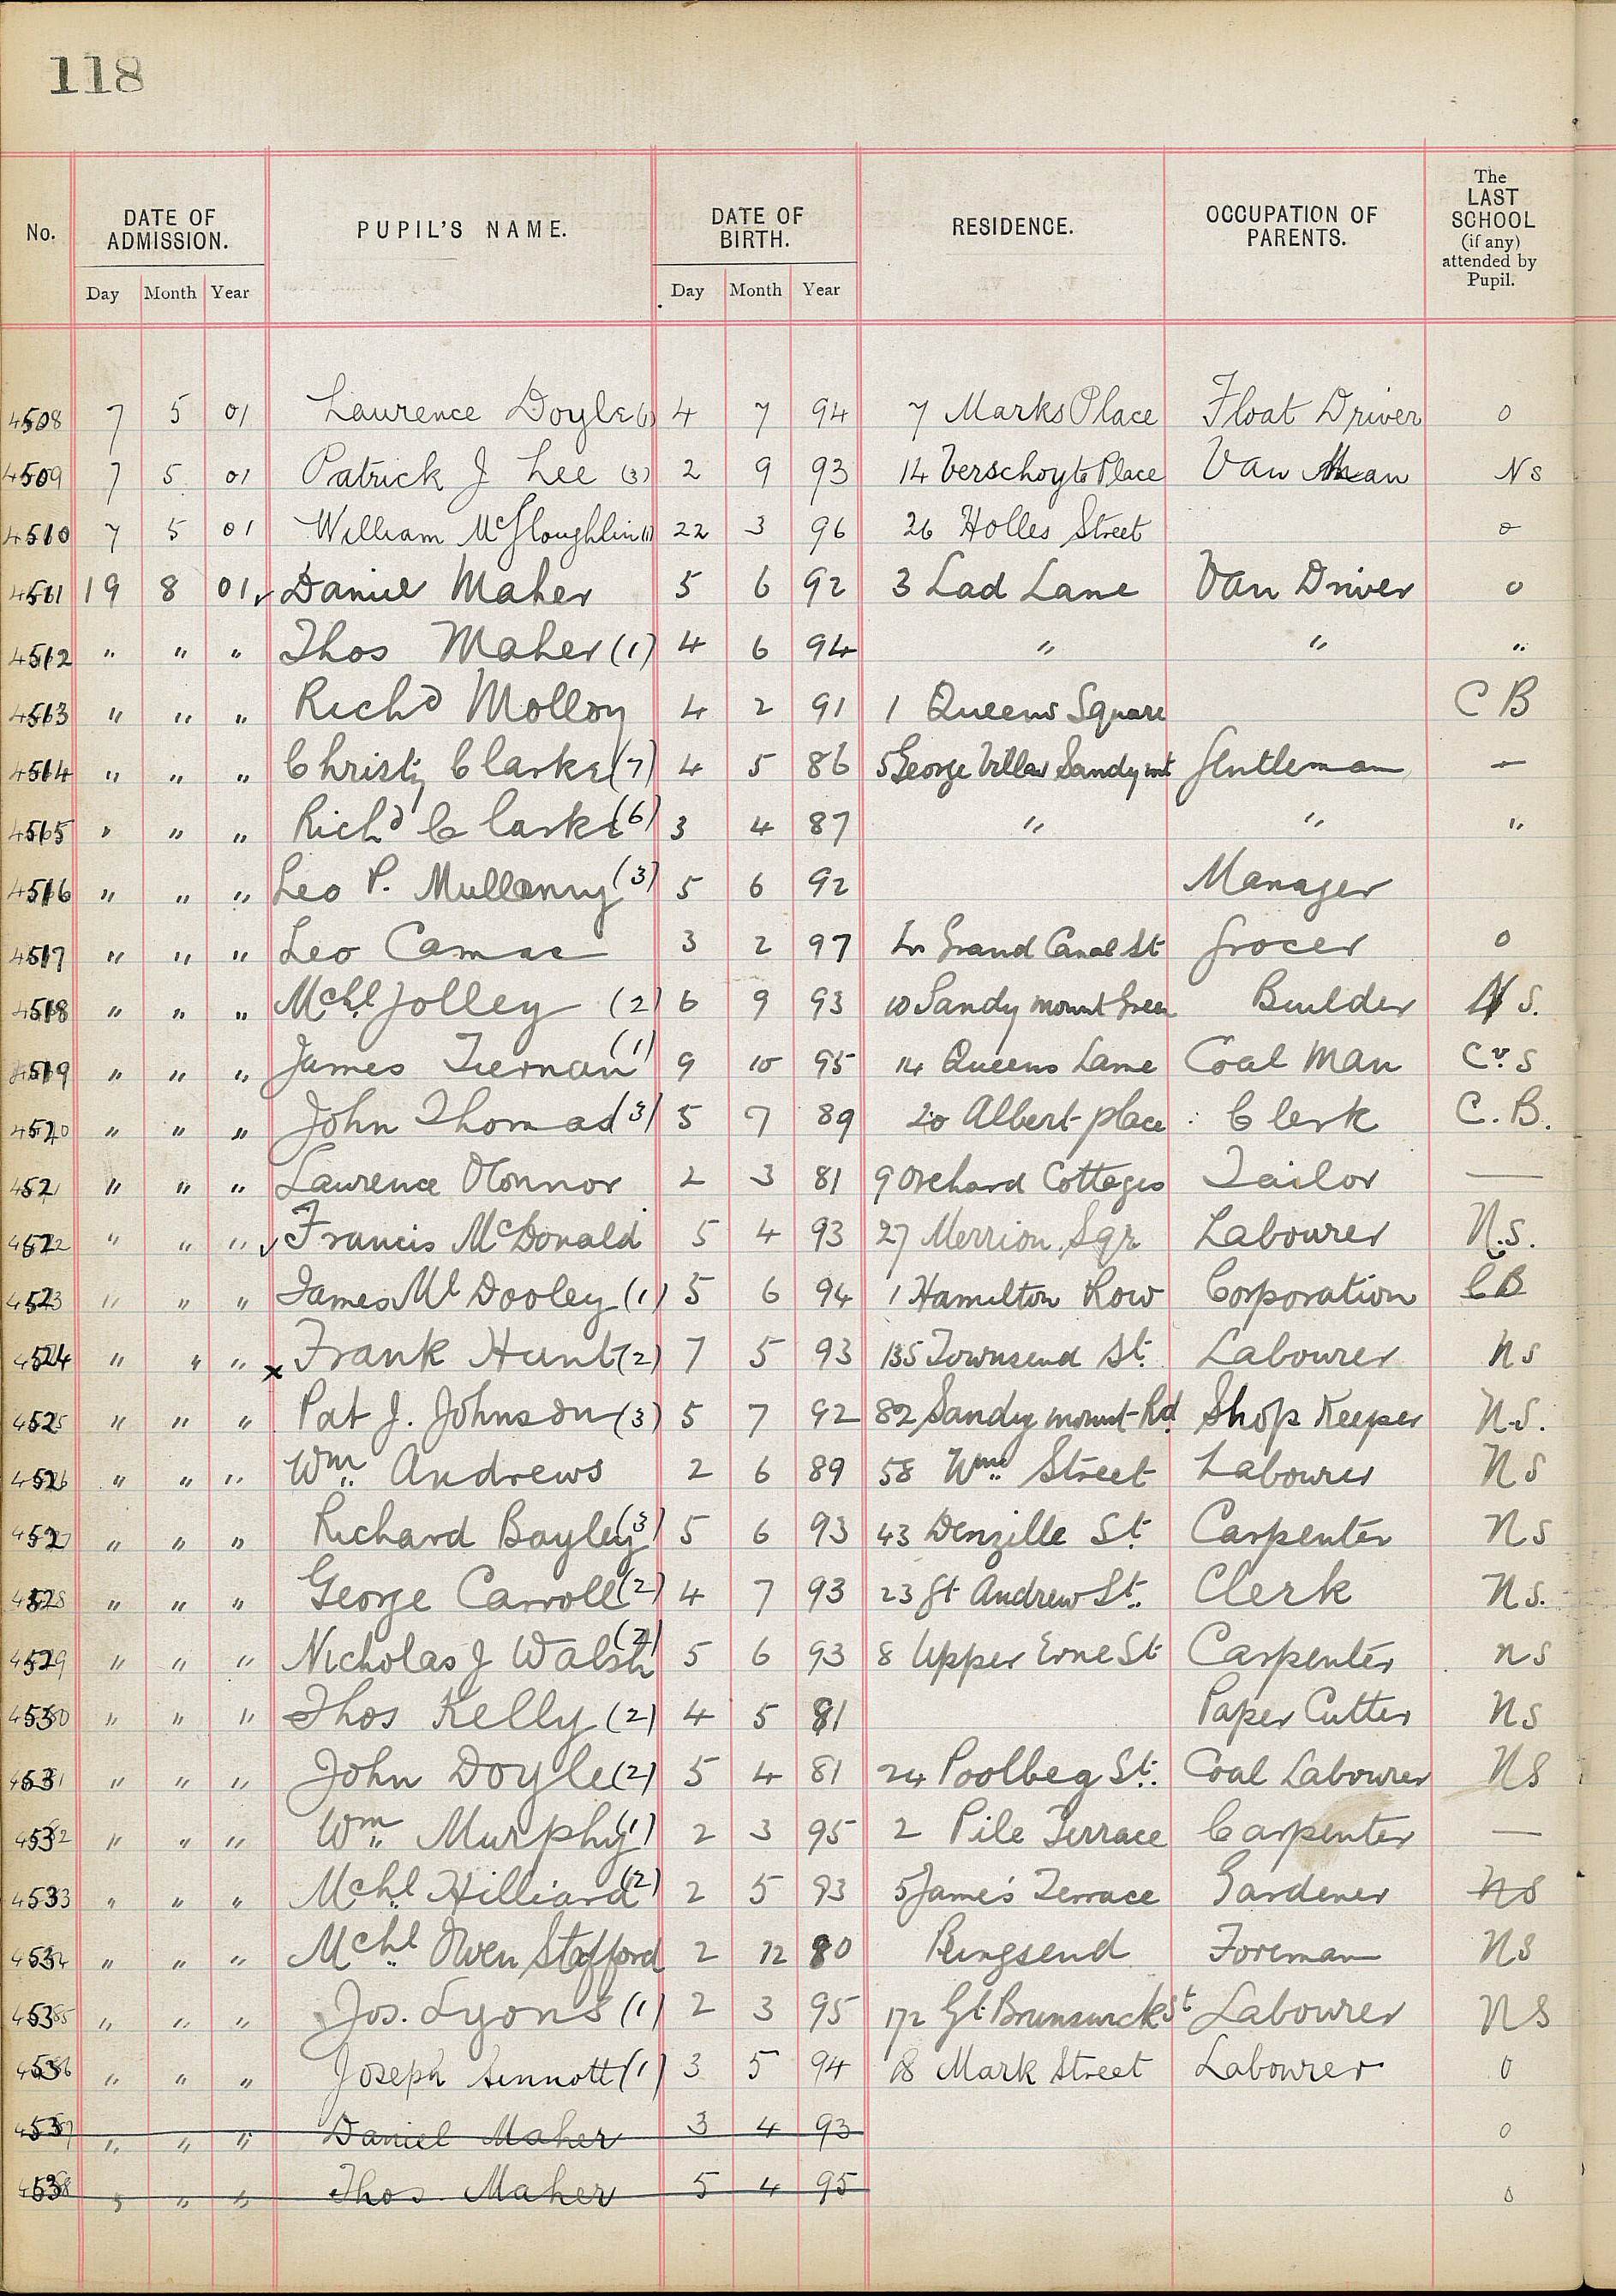 118
No. DATE OF ADMISSION. PUPIL'S NAME. DATE OF BIRTH. RESIDENCE. OCCUPATION OF PARENTS. The LAST SCHOOL (if any) attended by Pupil.
Day Month Year Day Month Year
4508 7 5 01 Laurence Doyle (1) 4 7 94 7 Marks Place Float Driver 0
4509 7 5 01 Patrick J Lee (3) 2 9 93 14 Verschoyle Place Van Man NS
4510 7 5 01 William McGloughlin (1) 22 3 96 26 Holles Street 0
4511 19 8 01 Daniel Maher 5 6 92 3 Lad Lane Van Driver 0
4512 " " " Thos Maher (1) 4 6 94 " " "
4513 " " " Richd Molloy 4 2 91 1 Queens Square C B
4514 " " " Christy Clarke (7) 4 5 86 5 George Villas Sandymt Gentleman —
4515 " " " Richd Clarke (6) 3 4 87 " " "
4516 " " " Leo P. Mullanny (3) 5 6 92 Manager
4517 " " " Leo Camac 3 2 97 Grand Canal St Grocer 0
4518 " " " Mchl Jolley (2) 6 9 93 10 Sandymount Green Builder N S.
4519 " " " James Tiernan (1) 9 10 95 14 Queens Lane Coal Man Cv S
4520 " " " John Thomas (3) 5 7 89 20 Albert place Clerk C. B.
4521 " " " Laurence OConnor 2 3 81 9 Orchard Cottages Tailor —
4522 " " " Francis McDonald 5 4 93 27 Merrion Sqr Labourer N.S.
4523 " " " James Ml Dooley (1) 5 6 94 1 Hamilton Row Corporation CB
4524 " " " x Frank Hunt (2) 7 5 93 135 Townsend St. Labourer NS
4525 " " " Pat J. Johnson (3) 5 7 92 82 Sandymount Rd. Shop Keeper N.S.
4526 " " " Wm Andrews 2 6 89 58 Wm Street Labourer NS
4527 " " " Richard Bayley (3) 5 6 93 43 Denzille St. Carpenter NS
4528 " " " George Carroll (2) 4 7 93 23 St Andrew St. Clerk NS.
4529 " " " Nicholas J Walsh (2) 5 6 93 8 Upper Erne St Carpenter NS
4530 " " " Thos Kelly (2) 4 5 81 Paper Cutter NS
4531 " " " John Doyle (2) 5 4 81 24 Poolbeg St. Coal Labourer NS
4532 " " " Wm Murphy (1) 2 3 95 2 Pile Terrace Carpenter —
4533 " " " Mchl Hilliard (2) 2 5 93 5 James's Terrace Gardener NS
4534 " " " Mchl Owen Stafford 2 12 80 Ringsend Foreman NS
4535 " " " Jos. Lyons (1) 2 3 95 172 Gt Brunswick St Labourer NS
4536 " " " Joseph Sinnott (1) 3 5 94 18 Mark Street Labourer 0
4537 " " " Daniel Maher 3 4 93 0
4538 " " " Thos. Maher 5 4 95 0